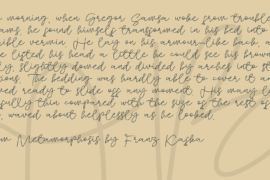 morning, when Gregor Samsa woke from trouble
ams, he found himself transformed in his bed into
ible vermin. He lay on his armour-like back, a
e lifted his head a little he could see his brown
ly, slightly domed and divided by arches into st
ions. The bedding was hardly able to cover it a
med ready to slide off any moment. His many l
ifully thin compared with the size of the rest of
, waved about helplessly as he looked.
m Metamorphosis by Franz Kafka